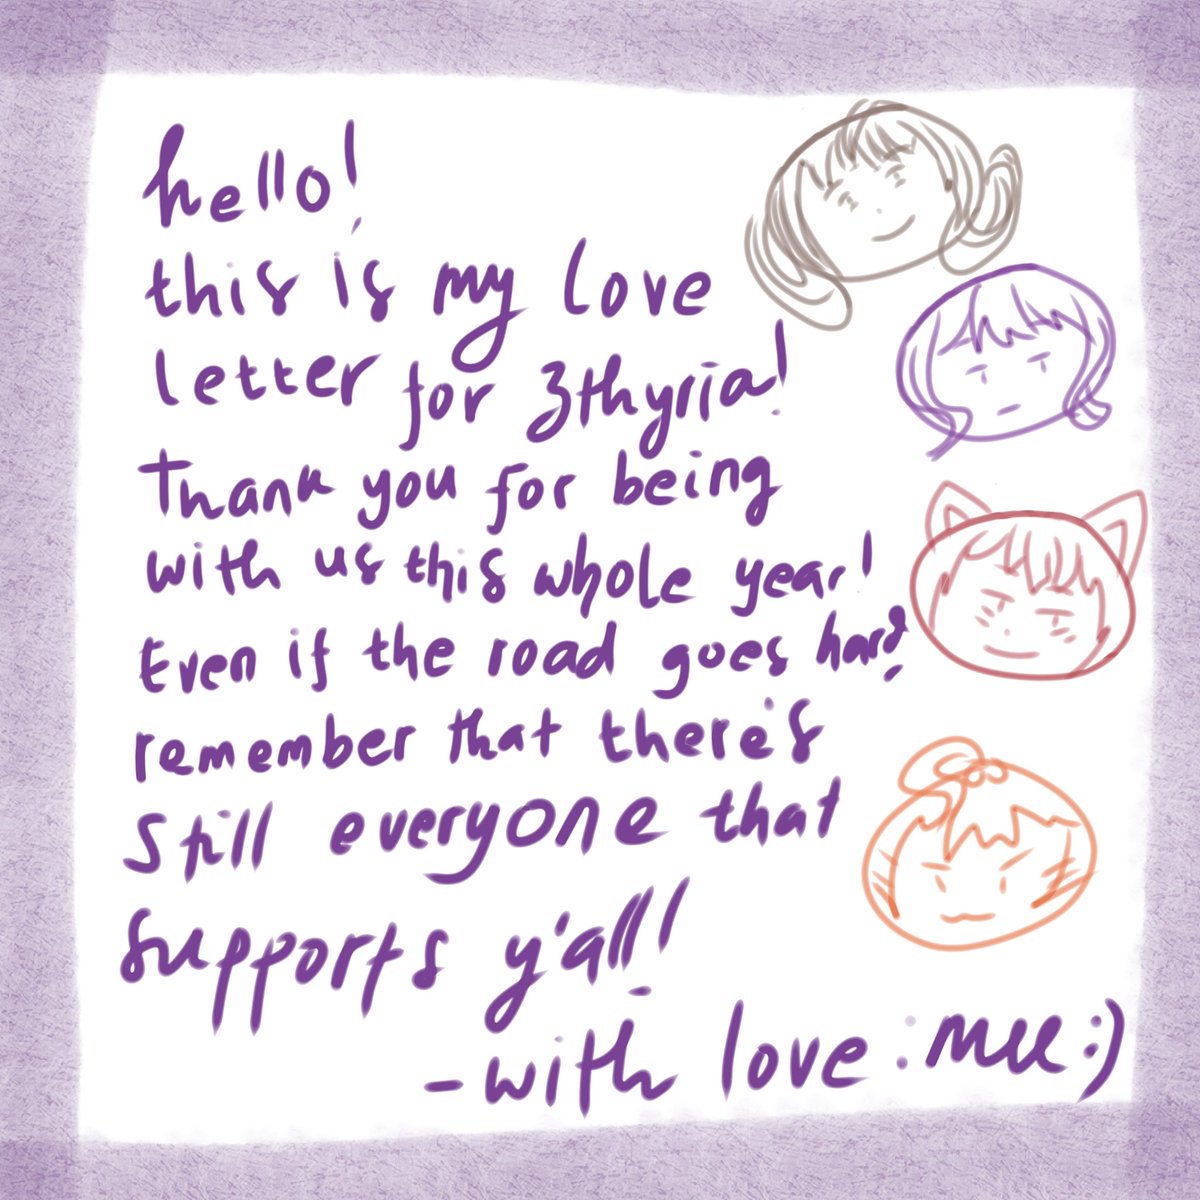 hello!
this is my love
letter for 3thyria!
Thank you for being
with us this whole year!
Even if the road goes hard!
remember that there's
Still everyone that
supports y'all!
-with love : Mee :)